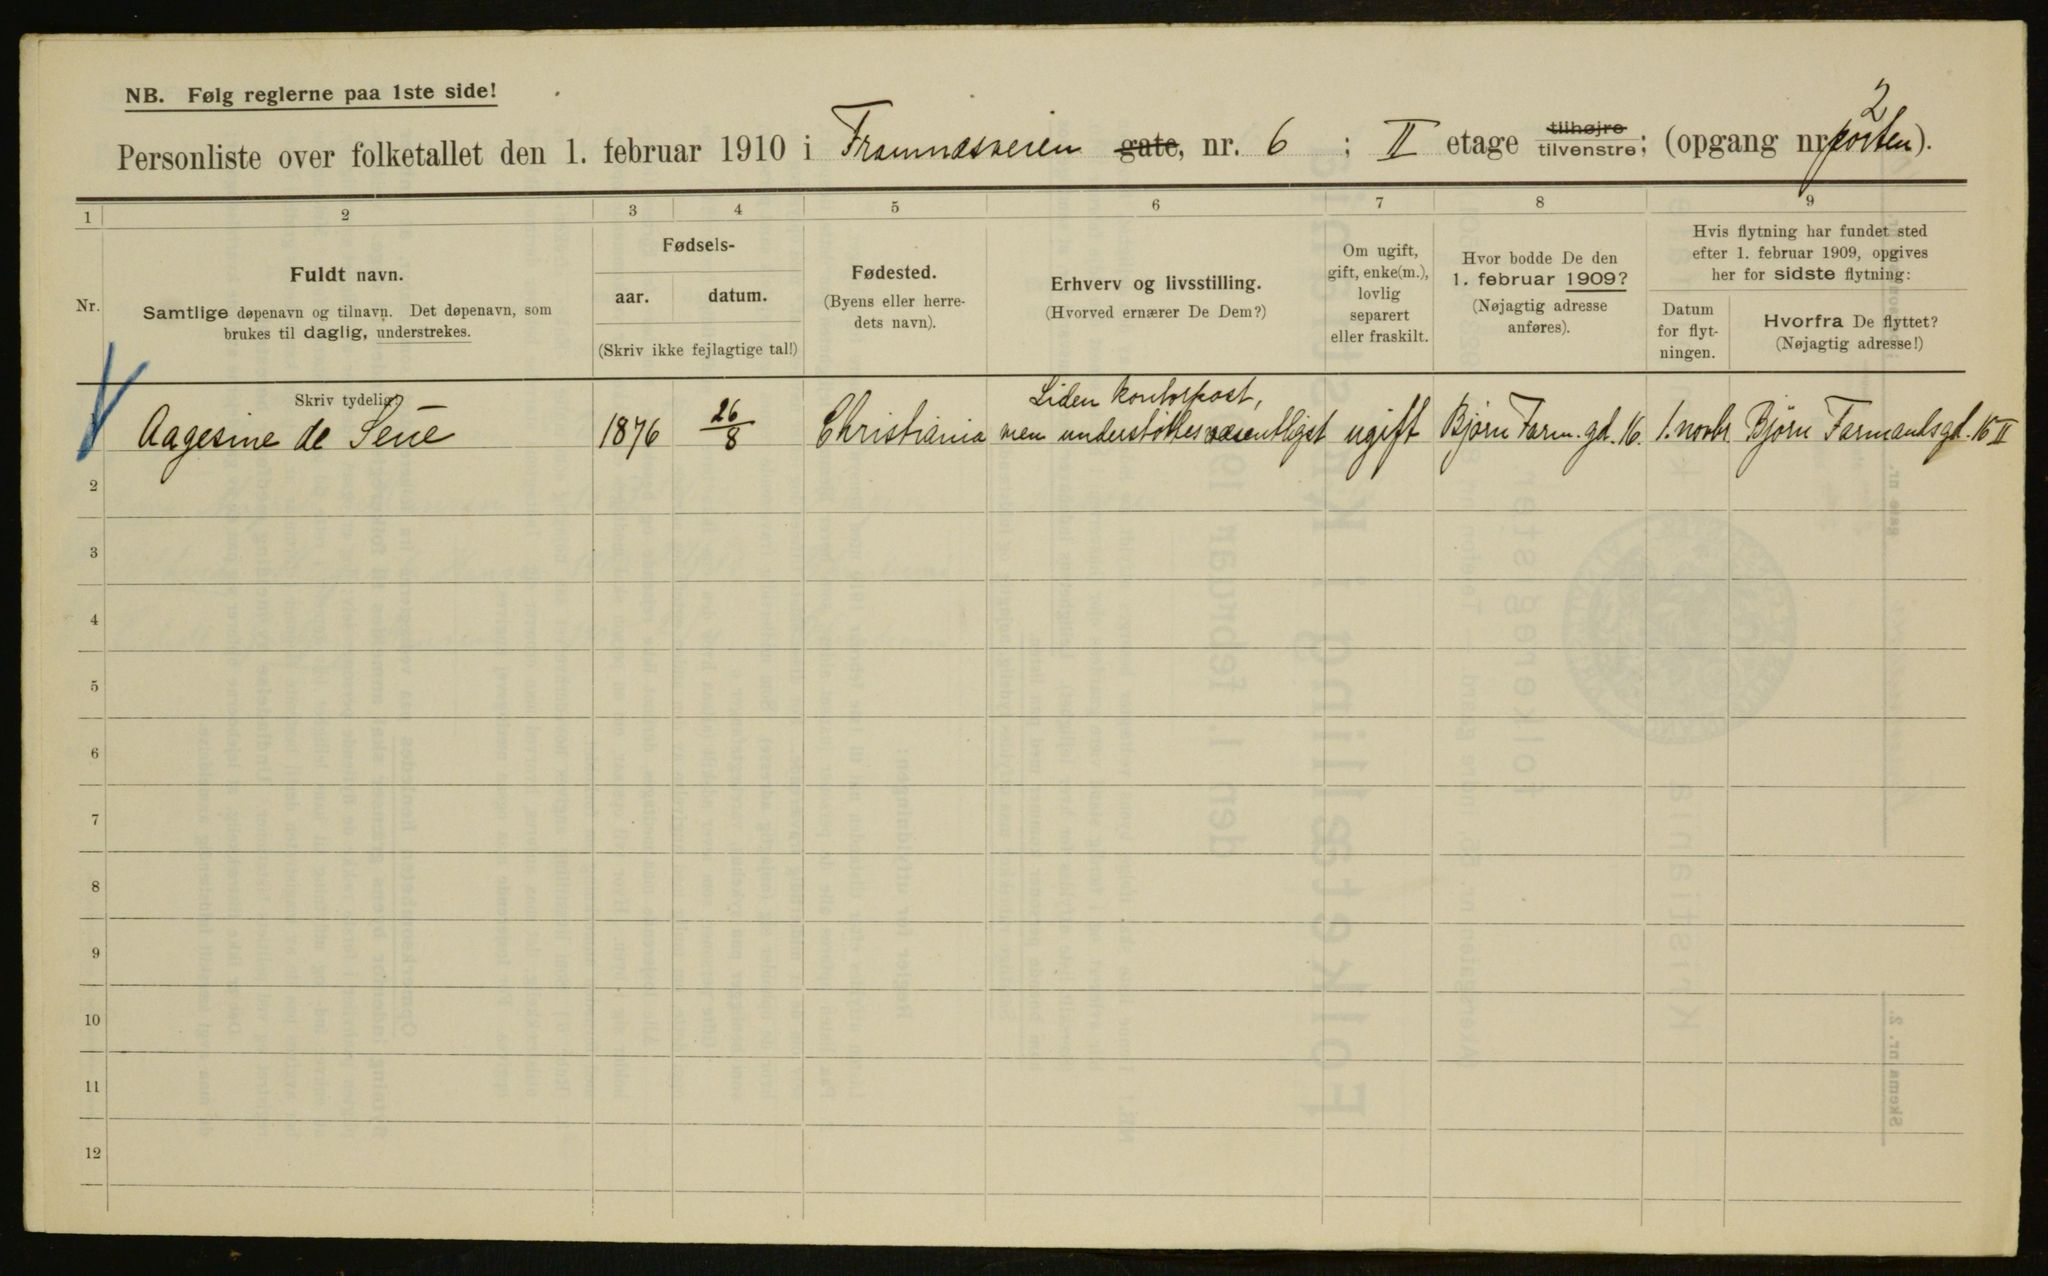 NB. Følg reglerne paa 1ste side!
Personliste over folketallet den 1. februar 1910 i Framnæsveien gate, nr. 6 ; II etage tilhøjre tilvenstre; (opgang nr. 2 porten).
1 2 3 4 5 6 7 8 9
Nr.
Fuldt navn.
Samtlige døpenavn og tilnavn. Det døpenavn, som
brukes til daglig, understrekes.
Fødsels-
aar. datum.
(Skriv ikke fejlagtige tal!)
Fødested.
(Byens eller herre-
dets navn).
Erhverv og livsstilling.
(Hvorved ernærer De Dem?)
Om ugift,
gift, enke(m.),
lovlig
separert
eller fraskilt.
Hvor bodde De den
1. februar 1909?
(Nøjagtig adresse
anføres).
Hvis flytning har fundet sted
efter 1. februar 1909, opgives
her for sidste flytning:
Datum
for flyt-
ningen.
Hvorfra De flyttet?
(Nøjagtig adresse!)
Skriv tydelig!
Liden kontorpost,
Aagesine de Seue 1876 26/8 Christiania men understøttes væsentligst ugift Bjørn Farm. gd. 16. 1. novbr Bjørn Farmandsgd. 16 II
2
3
4
5
6
7
8
9
10
11
12